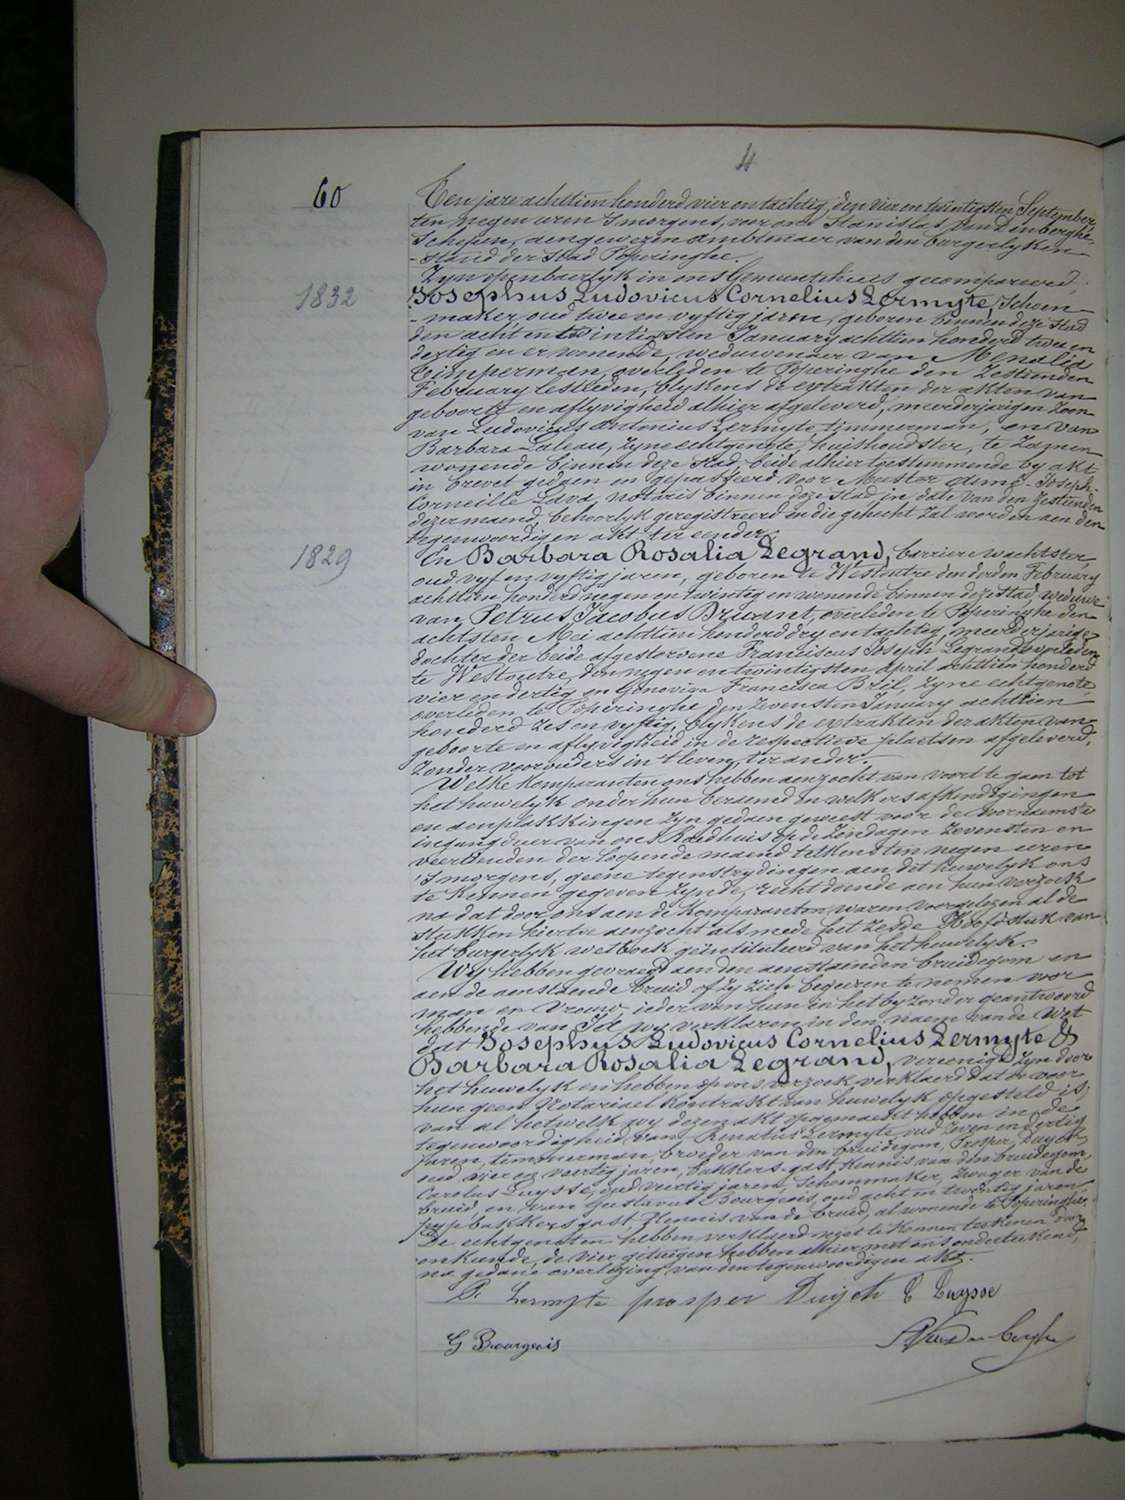 4
60
Ten jare achttien honderd vier en tachtig, den vier en twintigsten September,
ten negen uren 's morgens, voor ons Stanislas Van Denberghe,
Schepen, aengewezen ambtenaer van den burgerlyken
- stand der stad Poperinghe.
Zyn openbaerlyk in ons Gemeentehuis gecompareerd,
1832
Josephus Ludovicus Cornelius Lermyte, Schoen-
- maker, oud twee en vyftig jaren, geboren binnen deze stad
den acht en twintigsten January achttien honderd twee en
dertig en er wonende, weduwenaer van Menalia
Timperman, overleden te Poperinghe den Zestienden
February lestleden, blykens de extrakten der akten van
geboorte en aflyvigheid alhier afgeleverd, meerderjarigen Zoon
van Ludovicus Antonius Lermyte, timmerman, en van
Barbara, zyne echtgenote, huishoudster, te Zamen
wonende binnen deze stad, beide alhier toestemmende by akt
in brevet gedaen en gepasseerd voor Meester Aimé-Joseph-
Corneille Lava, notaris binnen deze stad, in date van den Zestienden
dezer maend, behoorlyk geregistreerd en die gehecht zal worden aen den
tegenwoordigen akt, ter eender;
1829
En Barbara Rosalia Legrand, barrierewachtster,
oud vyf en vyftig jaren, geboren te Westoutre den derden February
achttien honderd negen en twintig en wonende binnen deze stad, weduwe
van Petrus Jacobus Briout, overleden te Poperinghe den
achtsten Mei achttien honderd dry en tachtig, meerderjarige
dochter der beide afgestorvene Franciscus Joseph Legrand, overleden
te Westoutre, den negen en twintigsten April achttien honderd
vier en dertig en Genoviva Francisca Bril, zyne echtgenote
overleden te Poperinghe den Zevensten January achttien
honderd Zes en vyftig, blykens de extrakten der akten van
geboorte en aflyvigheid in de respectieve plaetsen afgeleverd,
zonder voorouders in 't leven, ter ander.
Welke Komparanten ons hebben aenzocht van voort te gaen tot
het huwelyk onder hun beraemd en welkers afkondigingen
en aenplakkingen zyn gedaen geweest voor de voornaemste
ingangdeur van ons Raedhuis op de Zondagen Zevensten en
veertienden der loopende maend telkens ten negen uren
's morgens, geene tegenstrydingen aen dit huwelyk ons
te kennen gegeven zynde, recht doende aen hun verzoek
na dat door ons aen de Komparanten, waren voorgelezen al de
stukken hiertoe aenzocht als mede het Zesde Hoofdstuk van
het burgerlyk wetboek geïntituleerd van het huwelyk.
Wy hebben gevraegd aen den aenstaenden bruidegom en
aen de aenstaende bruid of zy zich begeeren te nemen voor
man en vrouw, ieder van hun in het byzonder geantwoord
hebbende van Ja, wy verklaren in den naem van de Wet
dat Josephus Ludovicus Cornelius Lermyte &
Barbara Rosalia Legrand, vereenigd zyn door
het huwelyk en hebben op ons verzoek verklaerd dat er voor
hun geen Notariael kontrakt van huwelyk opgesteld is,
van al hetwelk wy dezen akt opgemaekt hebben in de
tegenwoordigheid van Renatus Lermyte, oud Zeven en dertig
jaren, timmerman, broeder van den bruidegom, Prosper
oud vier en veertig jaren, bakkers-gast, Kennis van den bruidegom,
Carolus Luysse, oud veertig jaren, Schoenmaker, Zwager van de
bruid, en van Gustavus Bourgeois, oud acht en twintig jaren,
bakkersgast, Kennis van de bruid, al wonende te Poperinghe.
De echtgenoten hebben verklaerd niet te konnen teekenen door
onkunde, de vier getuigen hebben alhier met ons onderteekend,
na gedane overlezing van den tegenwoordigen akt.
R. Lermyte prosper C Luysse
G Bourgeois